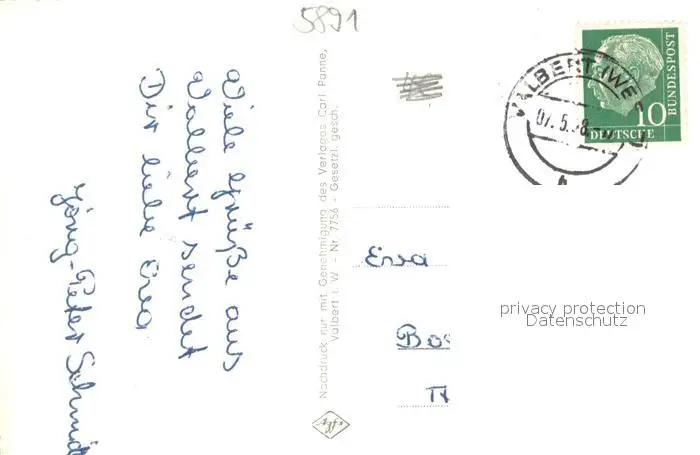 5891
Viele Grüße aus
Valbert sendet
Dir liebe Eva
Jörg-Peter Schmidt
Nachdruck nur mit Genehmigung des Verlages Carl Panne,
Valbert i. W. - Nr. 7756 - Gesetzl. gesch.
VALBERT (WE
07.5. 8
DEUTSCHE
BUNDESPOST
10
Eva
privacy protection
Datenschutz